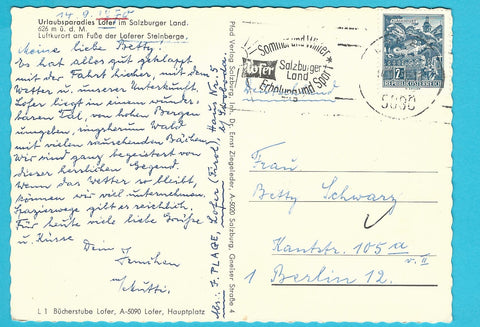 14.9.
Urlaubsparadies Lofer im Salzburger Land.
626 m ü. d. M.
Luftkurort am Fuße der Loferer Steinberge.
Meine liebe Betty!
Es hat alles gut geklappt
mit der Fahrt hierher, mit dem
Wetter u. unserer Unterkunft.
Lofer liegt in einem wunder-
baren Tal, von hohen Bergen
umgeben, ringsherum Wald
mit vielen rauschenden Bächen.
Wir sind ganz begeistert von
dieser herrlichen Gegend.
Wenn das Wetter so bleibt,
können wir viel unternehmen.
Spazierwege gibt es reichlich.
Für heute viele liebe Grüße
u. Küsse
Dein
u.
L 1 Bücherstube Lofer, A-5090 Lofer, Hauptplatz
Abs.: J. PLAGE, Lofer (Tirol), Haus
Pfad Verlag Salzburg Inh. Dr. Ernst Ziegeleder, A-5020 Salzburg, Gneiser Straße 4
Sommer und Winter
Lofer
Salzburger
Land
Erholung und Sport
5090
REPUBLIK ÖSTERREICH
Frau
Betty Schwarz
Kantstr. 105a
v. II
1 Berlin 12.